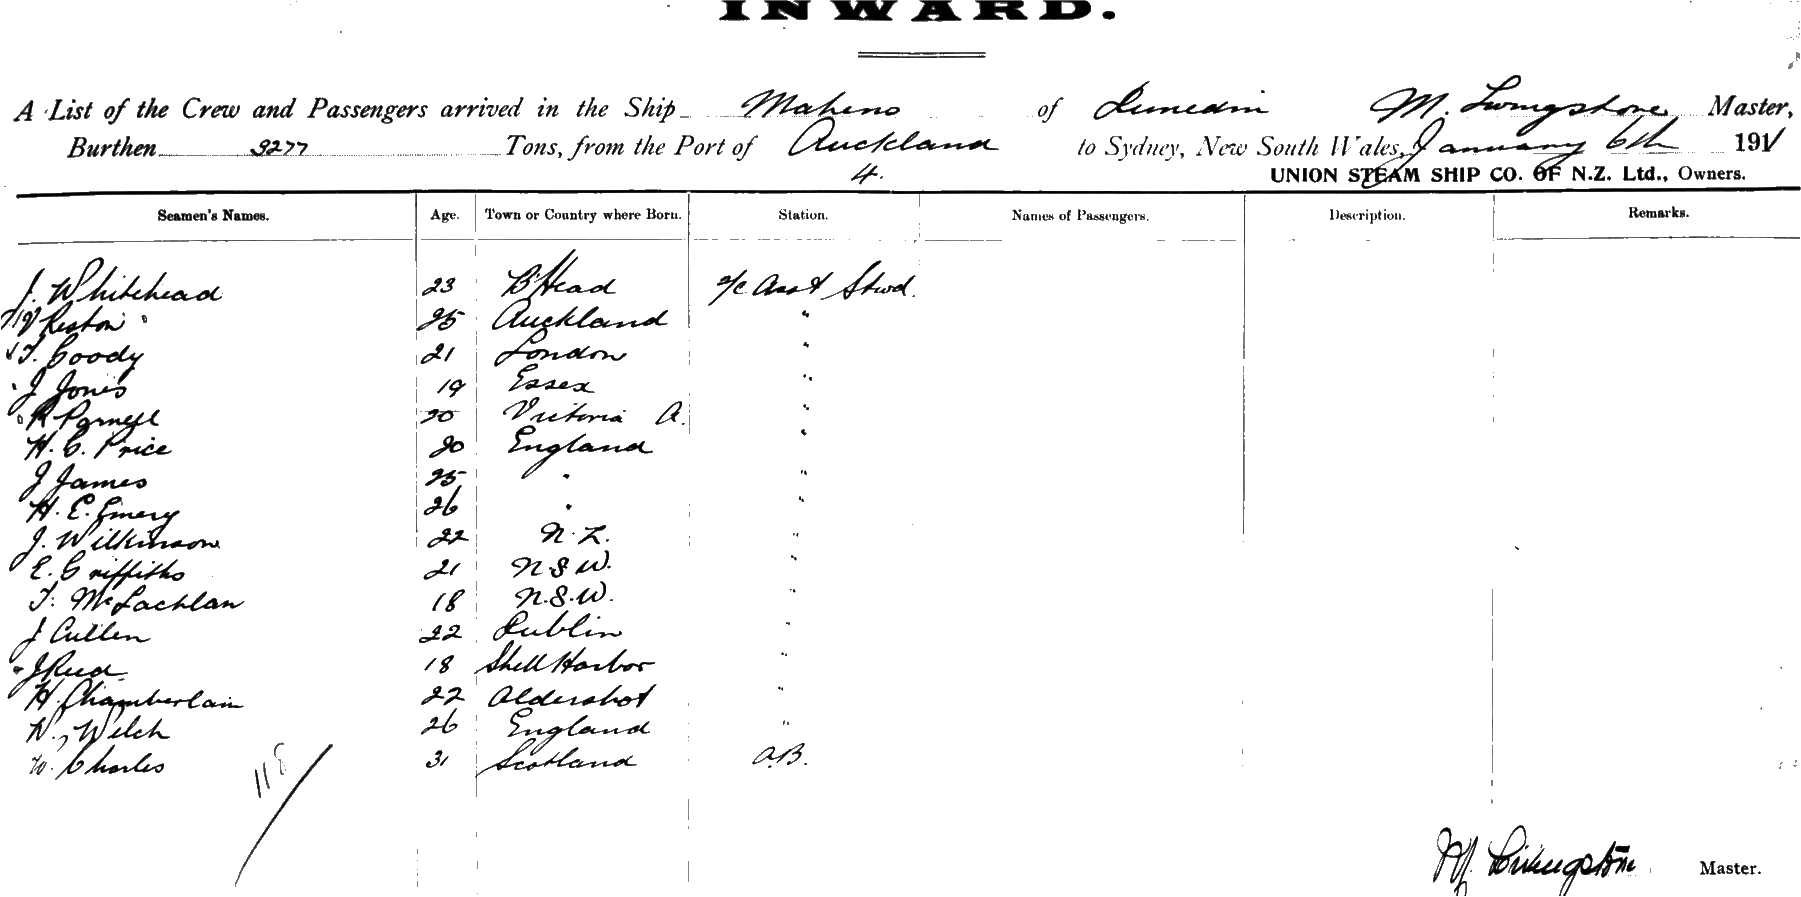 INWARD.
A List of the Crew and Passengers arrived in the Ship Maheno of Dunedin M. Livingstone Master,
Burthen 3277 Tons, from the Port of Auckland to Sydney, New South Wales, January 6th 1911
4. UNION STEAM SHIP CO. OF N.Z. Ltd., Owners.
Seamen's Names. Age. Town or Country where Born. Station. Names of Passengers. Description. Remarks.
J. Whitehead 23 B'Head Asst Stwd.
Reston 25 Auckland "
T. Coody 21 London "
J Jones 19 Essex "
R Parnell 20 Victoria A. "
H. C. Price 20 England "
J James 25 " "
H. E. Emery 26 " "
J. Wilkinson 22 N.Z. "
E. Griffiths 21 N.S.W. "
T. McLachlan 18 N.S.W. "
J Cullen 22 Dublin "
J Reed 18 Shell Harbor "
H. Chamberlain 22 Aldershot "
N. Welch 26 England "
W. Charles 31 Scotland A.B.
118
M Livingstone Master.